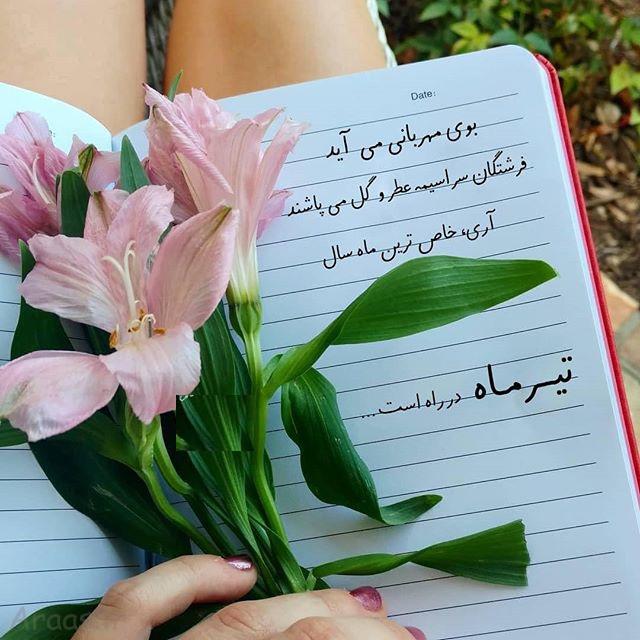 Date:
بوی مهربانی می آید
فرشتگان سراسیمه عطر و گل می پاشند
آری، خاص ترین ماه سال
تیرماه در راه است...
Araas